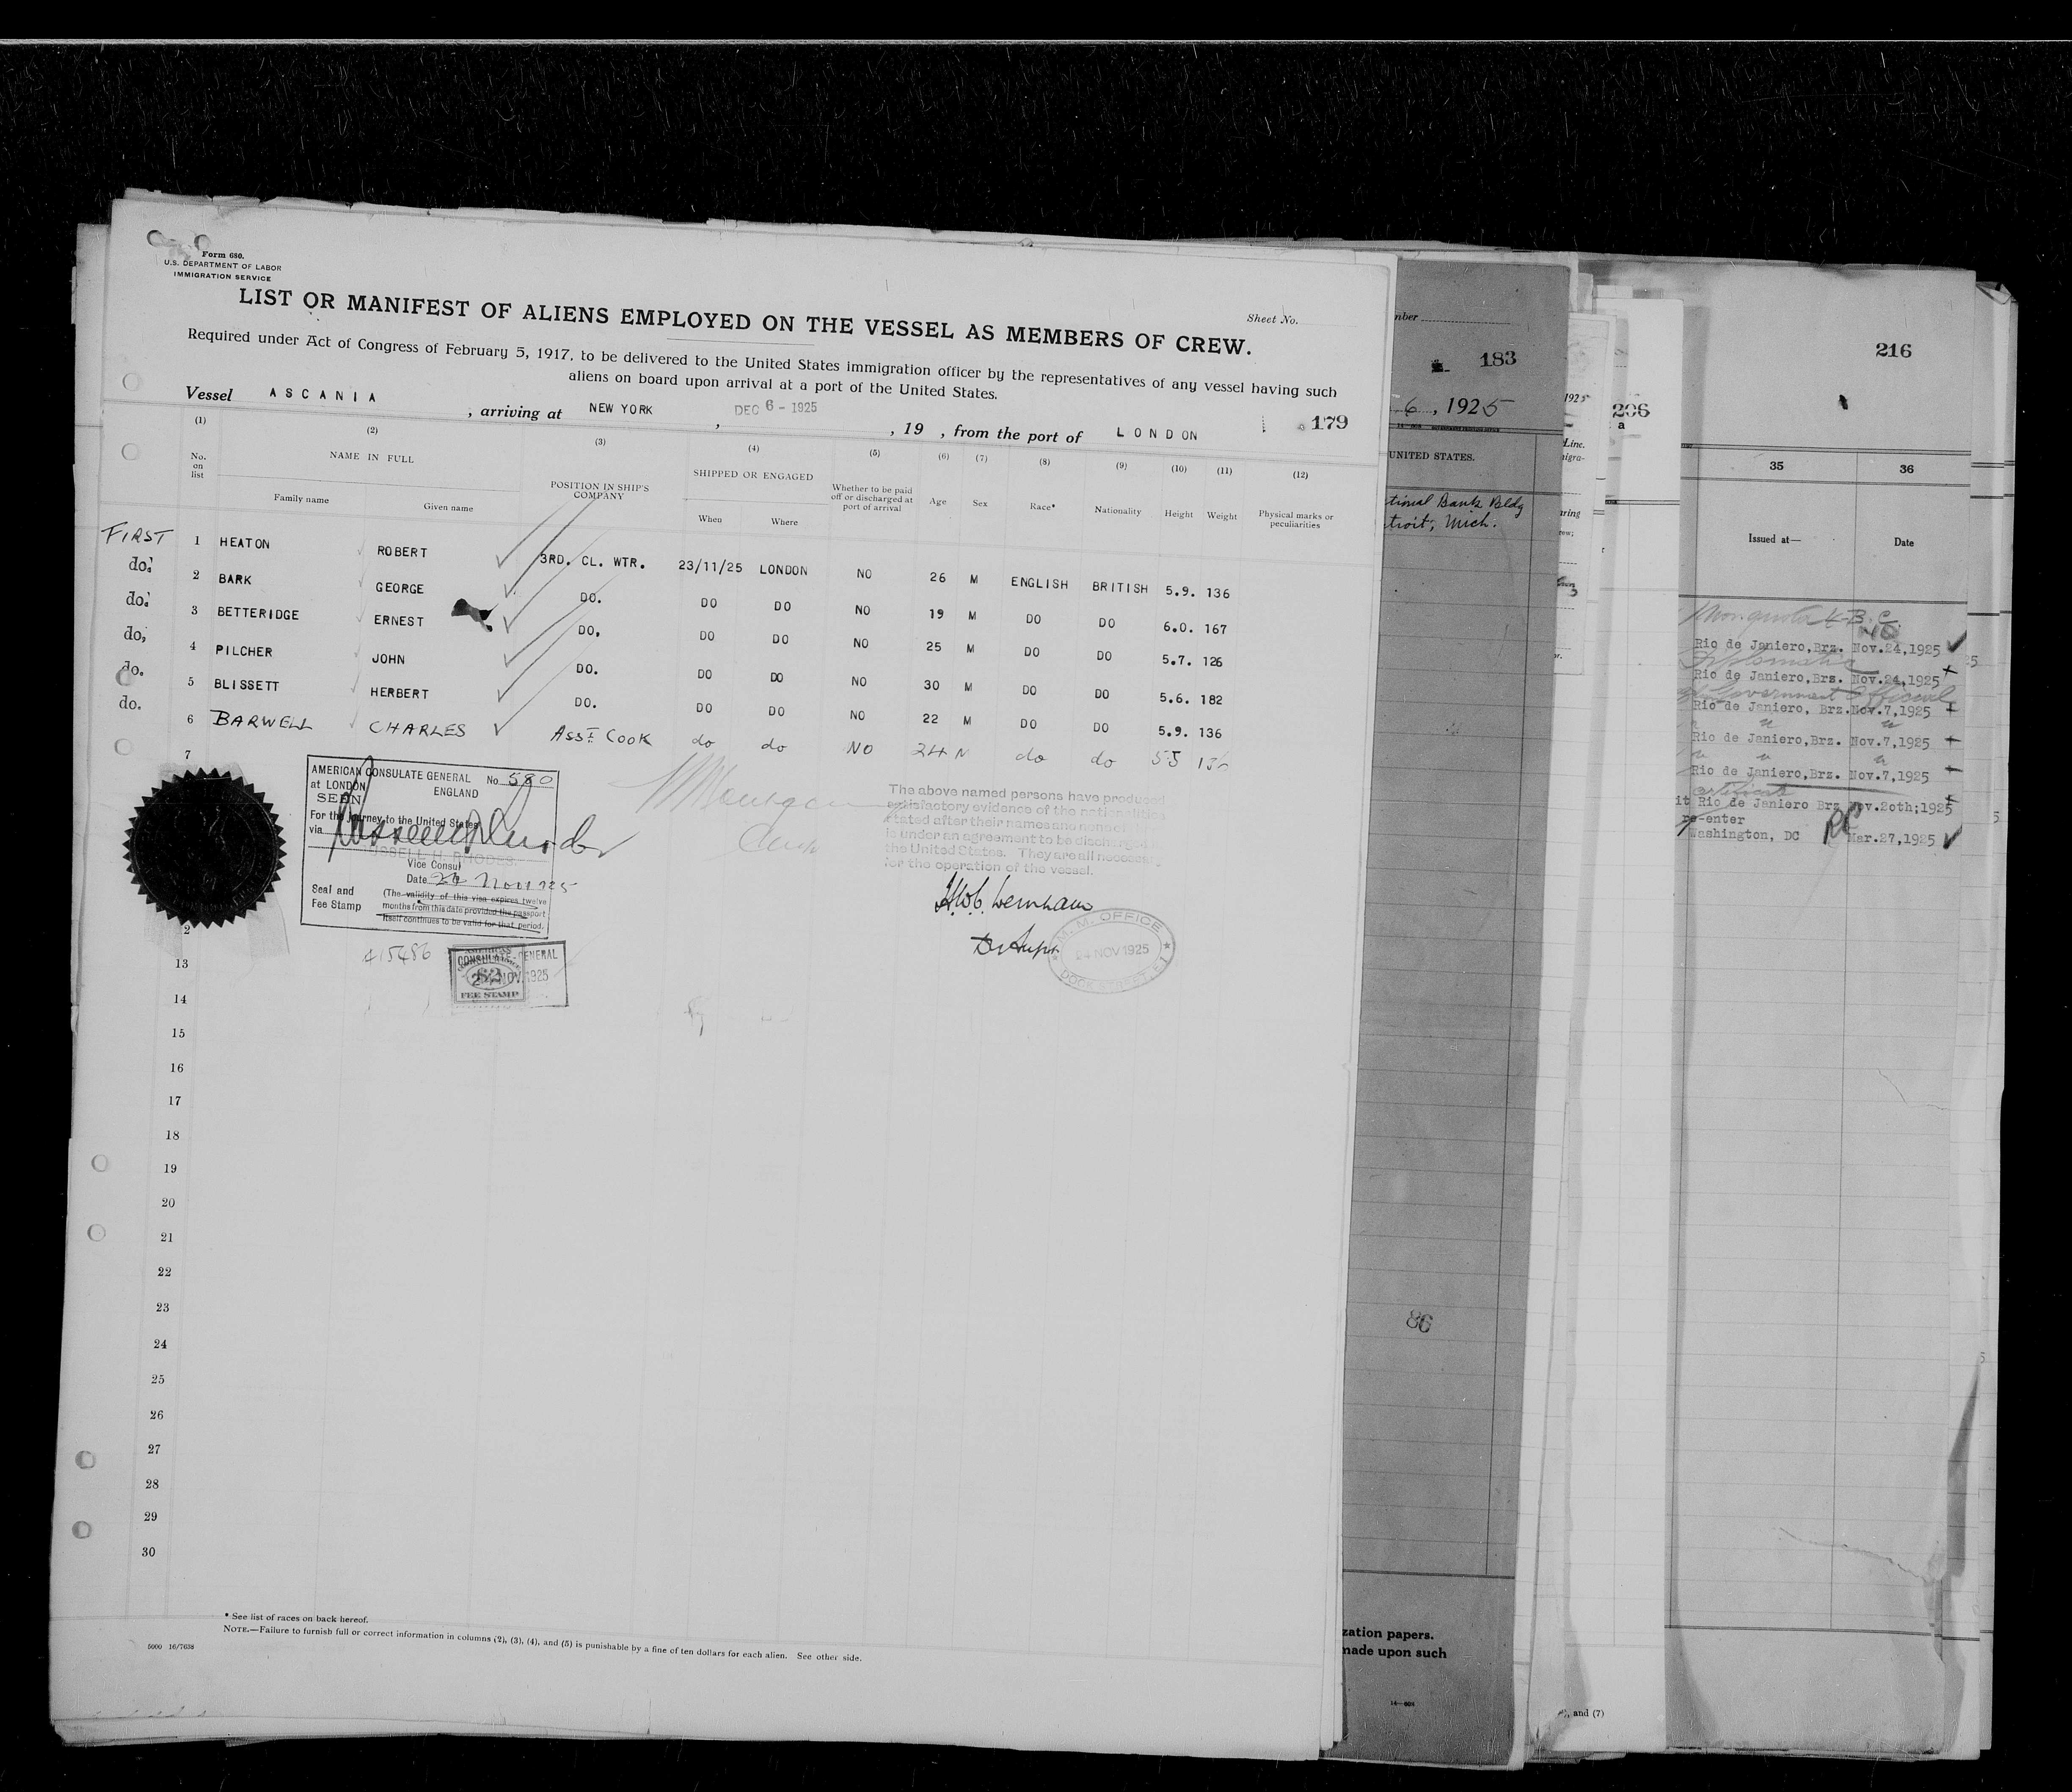 Form 680.
U.S. DEPARTMENT OF LABOR
IMMIGRATION SERVICE
LIST OR MANIFEST OF ALIENS EMPLOYED ON THE VESSEL AS MEMBERS OF CREW.
Sheet No.
Required under Act of Congress of February 5, 1917, to be delivered to the United States immigration officer by the representatives of any vessel having such
aliens on board upon arrival at a port of the United States.
Vessel ASCANIA , arriving at NEW YORK , DEC 6 - 1925 , 19 , from the port of LONDON
179
(1) (2) (3) (4) (5) (6) (7) (8) (9) (10) (11) (12)
No. on list
NAME IN FULL
Family name Given name
POSITION IN SHIP'S COMPANY
SHIPPED OR ENGAGED
When Where
Whether to be paid off or discharged at port of arrival
Age Sex Race* Nationality Height Weight
Physical marks or peculiarities
FIRST 1 HEATON ROBERT 3RD. CL. WTR. 23/11/25 LONDON NO 26 M ENGLISH BRITISH 5.9. 136
do. 2 BARK GEORGE DO. DO DO NO 19 M DO DO 6.0. 167
do. 3 BETTERIDGE ERNEST DO. DO DO NO 25 M DO DO 5.7. 126
do, 4 PILCHER JOHN DO. DO DO NO 30 M DO DO 5.6. 182
do. 5 BLISSETT HERBERT DO. DO DO NO 22 M DO DO 5.9. 136
do. 6 BARWELL CHARLES ASST COOK do do NO 24 M do do 5.5
7
AMERICAN CONSULATE GENERAL No 580
at LONDON ENGLAND
SEEN
For the Journey to the United States
via
Vice Consul
Date 24 Nov 1925
Seal and Fee Stamp
(The validity of this visa expires twelve
months from this date provided the passport
itself continues to be valid for that period.
The above named persons have produced
satisfactory evidence of the nationalities
stated after their names and none of
is under an agreement to be discharged
the United States. They are all necessary
for the operation of the vessel.
M. M. OFFICE
24 NOV 1925
DOCK STREET. E.1
415486
AMERICAN
CONSULATE-GENERAL
NOV. 1925
FEE STAMP
2
13
14
15
16
17
18
19
20
21
22
23
24
25
26
27
28
29
30
* See list of races on back hereof.
NOTE.—Failure to furnish full or correct information in columns (2), (3), (4), and (5) is punishable by a fine of ten dollars for each alien. See other side.
5000 16/7638
183
6 , 1925
UNITED STATES.
tional Bank Bldg
troit, Mich.
86
zation papers.
made upon such
206
a
, and (7)
216
35 36
Issued at— Date
Rio de Janiero,Brz. Nov.24,1925
Diplomatic
Rio de Janiero,Brz. Nov.24,1925
Government Official
Rio de Janiero, Brz. Nov.7,1925
Rio de Janiero,Brz. Nov.7,1925
Rio de Janiero,Brz. Nov.7,1925
it Rio de Janiero Brz Nov.20th;1925
re-enter
Washington, DC Mar.27,1925